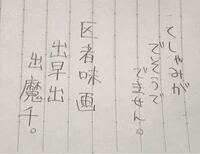 くしゃみが
でそうで
でません。
区者味画
出早出
出魔千。